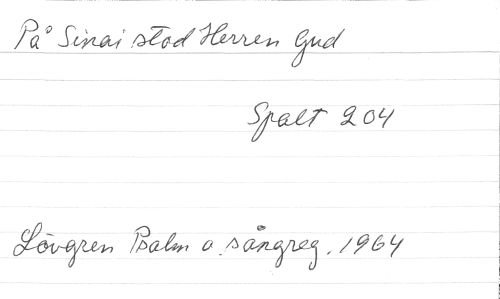 På Sinai stod Herren Gud
Spalt 204
Lövgren Psalm o. sångreg. 1964